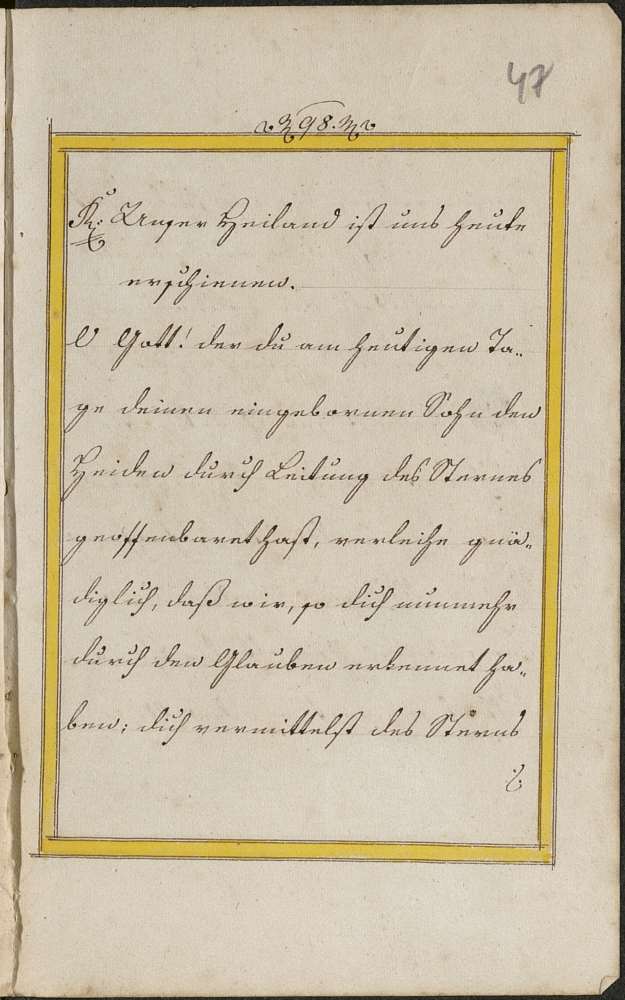 47
98.
R: Unser Heiland ist uns heute
erschienen.
O Gott! der du am heutigen Ta„
ge deinen eingebornen Sohn den
Heiden durch Leitung des Sternes
geoffenbaret hast, verleihe gnä„
diglich, daß wir, so dich nunmehr
durch den Glauben erkennet ha„
ben; dich vermittelst des Sterns